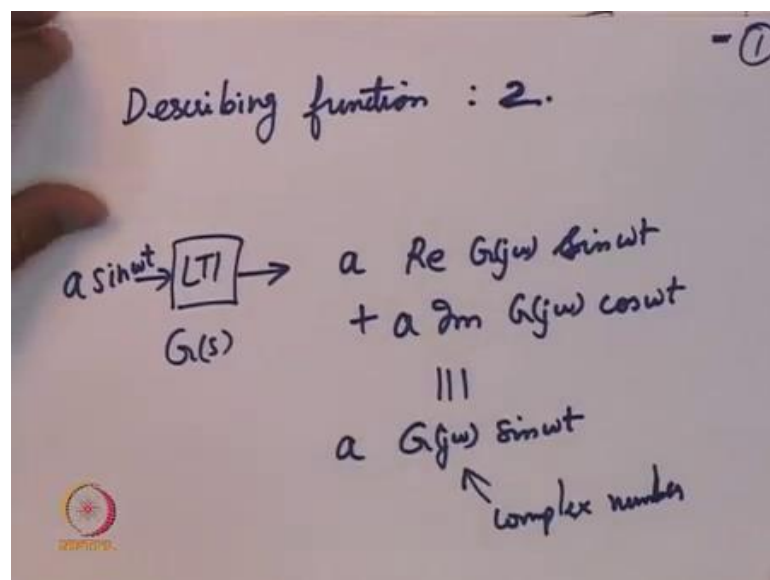 - ①
Describing function : 2.
a sin ωt → LTI → a Re G(jω) sin ωt
+ a Im G(jω) cos ωt
G(s)
|||
a G(jω) sin ωt
complex number